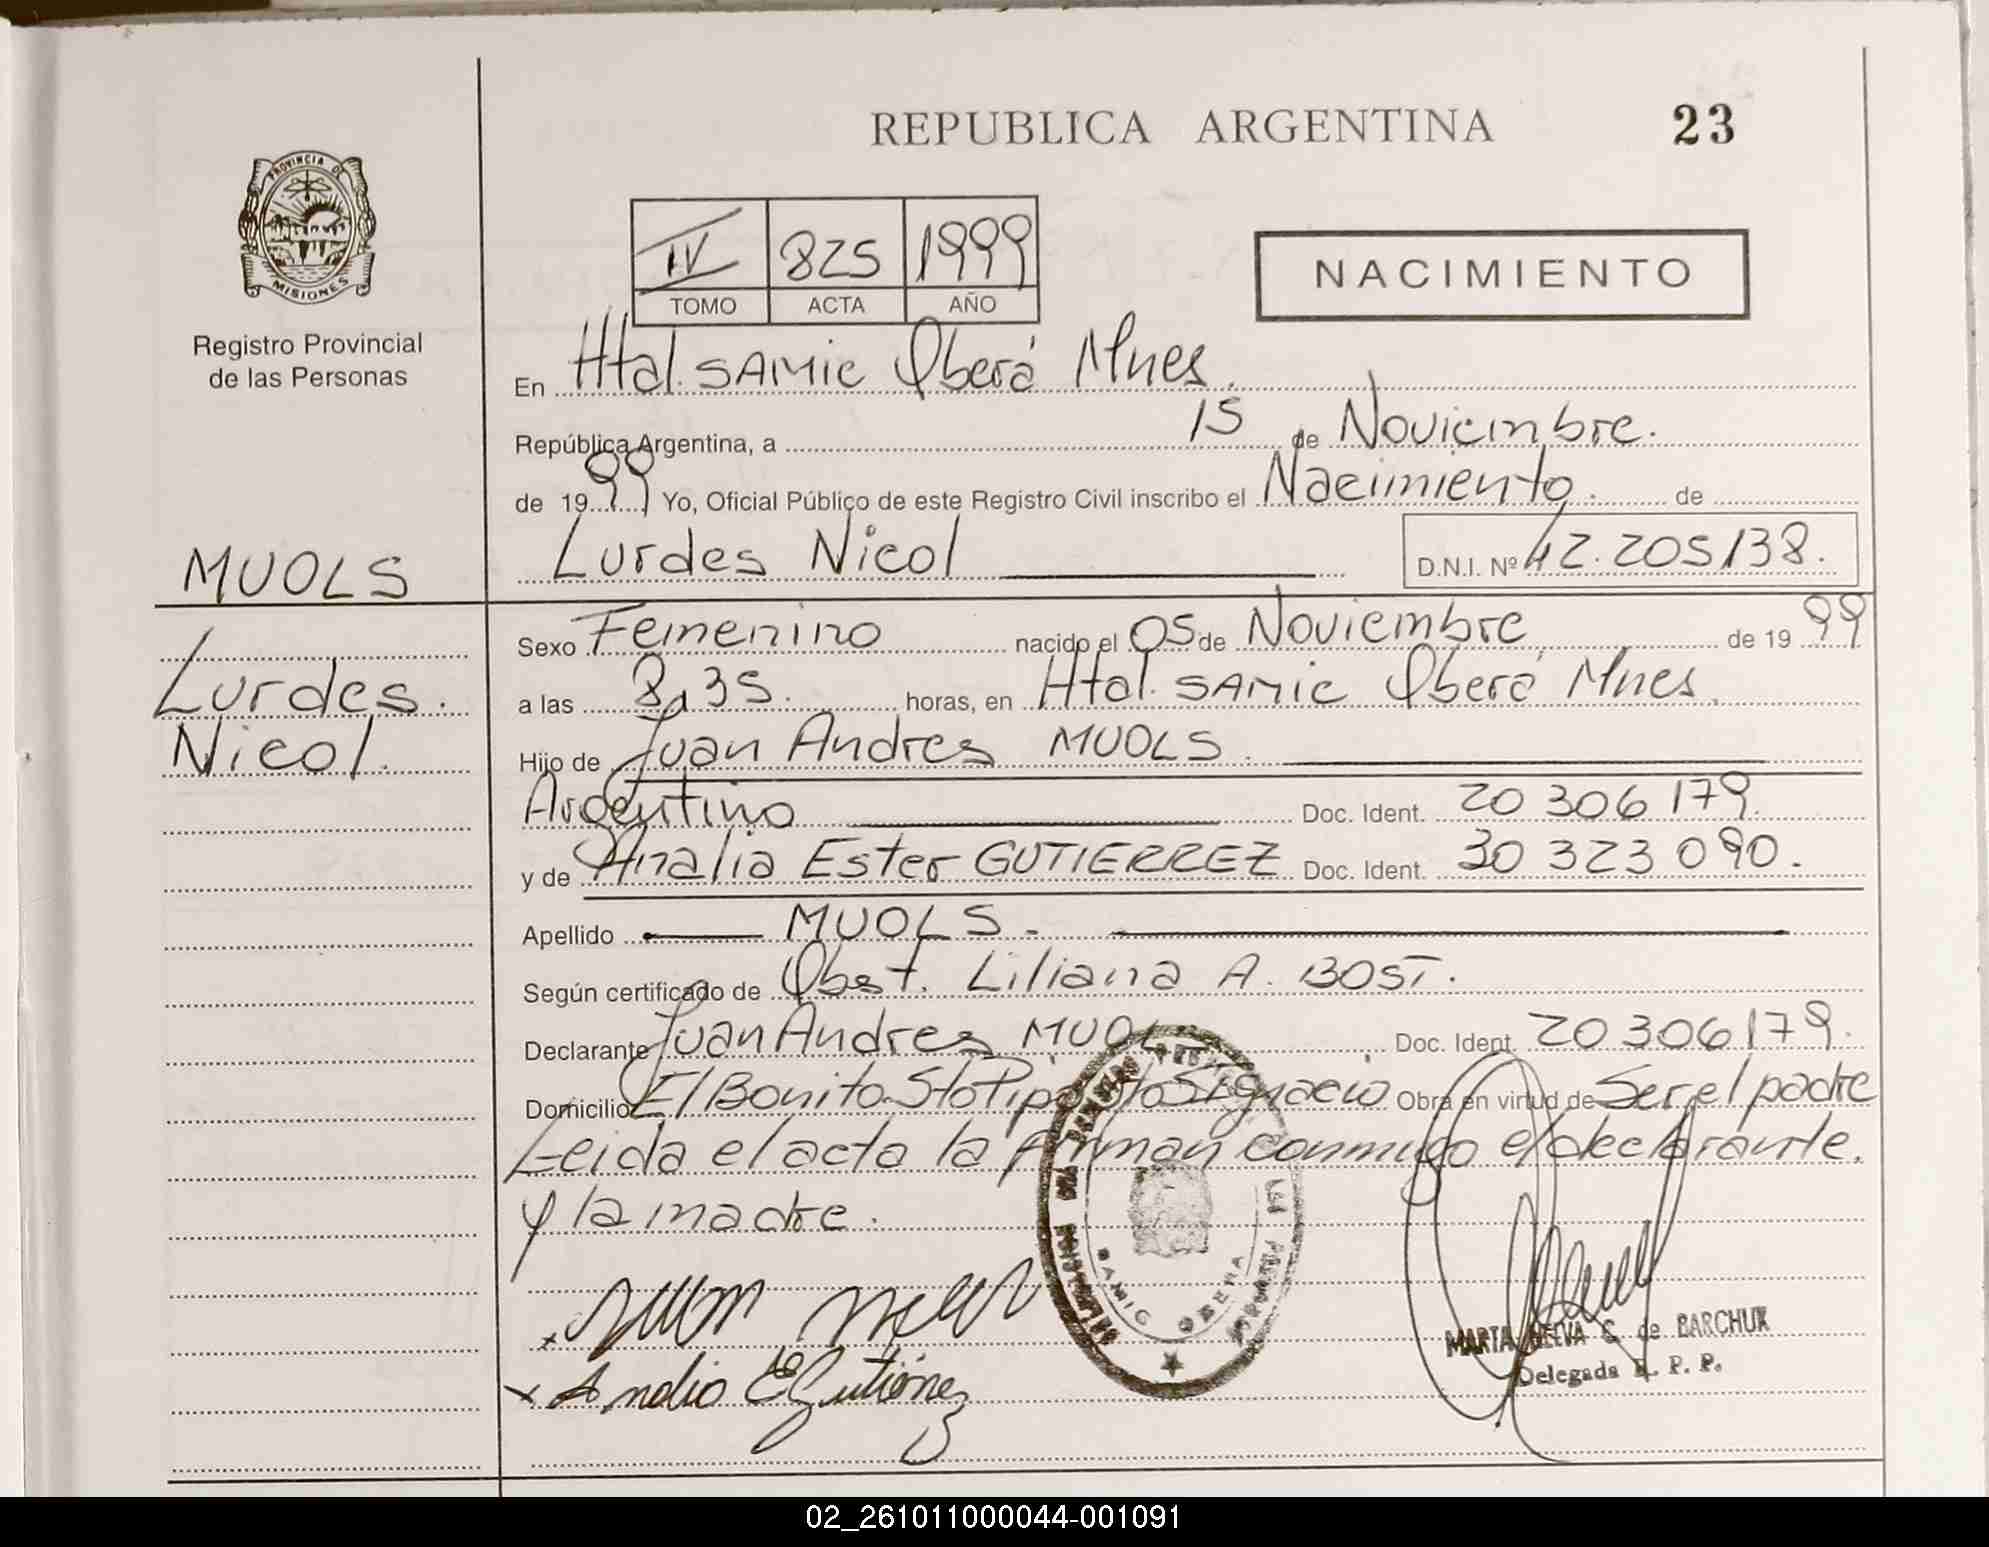 REPUBLICA ARGENTINA
23
PROVINCIA DE
MISIONES
Registro Provincial
de las Personas
IV 825 1999
TOMO ACTA AÑO
NACIMIENTO
En Htal. SAMIC Oberá Mnes.
República Argentina, a 15 de Noviembre.
de 1999 Yo, Oficial Público de este Registro Civil inscribo el Nacimiento. de
Lurdes Nicol
D.N.I. Nº 42.205138.
MUOLS
Lurdes.
Nicol.
Sexo Femenino nacido el 05 de Noviembre de 1999
a las 8,35. horas, en Htal. SAMIC Oberá Mnes.
Hijo de Juan Andres MUOLS.
Argentino Doc. Ident. 20 306 179.
y de Analia Ester GUTIERREZ Doc. Ident. 30 323 090.
Apellido MUOLS.
Según certificado de Obst. Liliana A. BOST.
Declarante Juan Andres MUOLS Doc. Ident. 20 306 179.
Domicilio El Bonito Sto Pipó Ignacio Obra en virtud de Ser el padre
Leida el acta la firman conmigo el declarante.
y la madre.
SAMIC OBERA
Analia E Gutierrez
MARTA de BARCHUK
Delegada R. P. P.
02_261011000044-001091